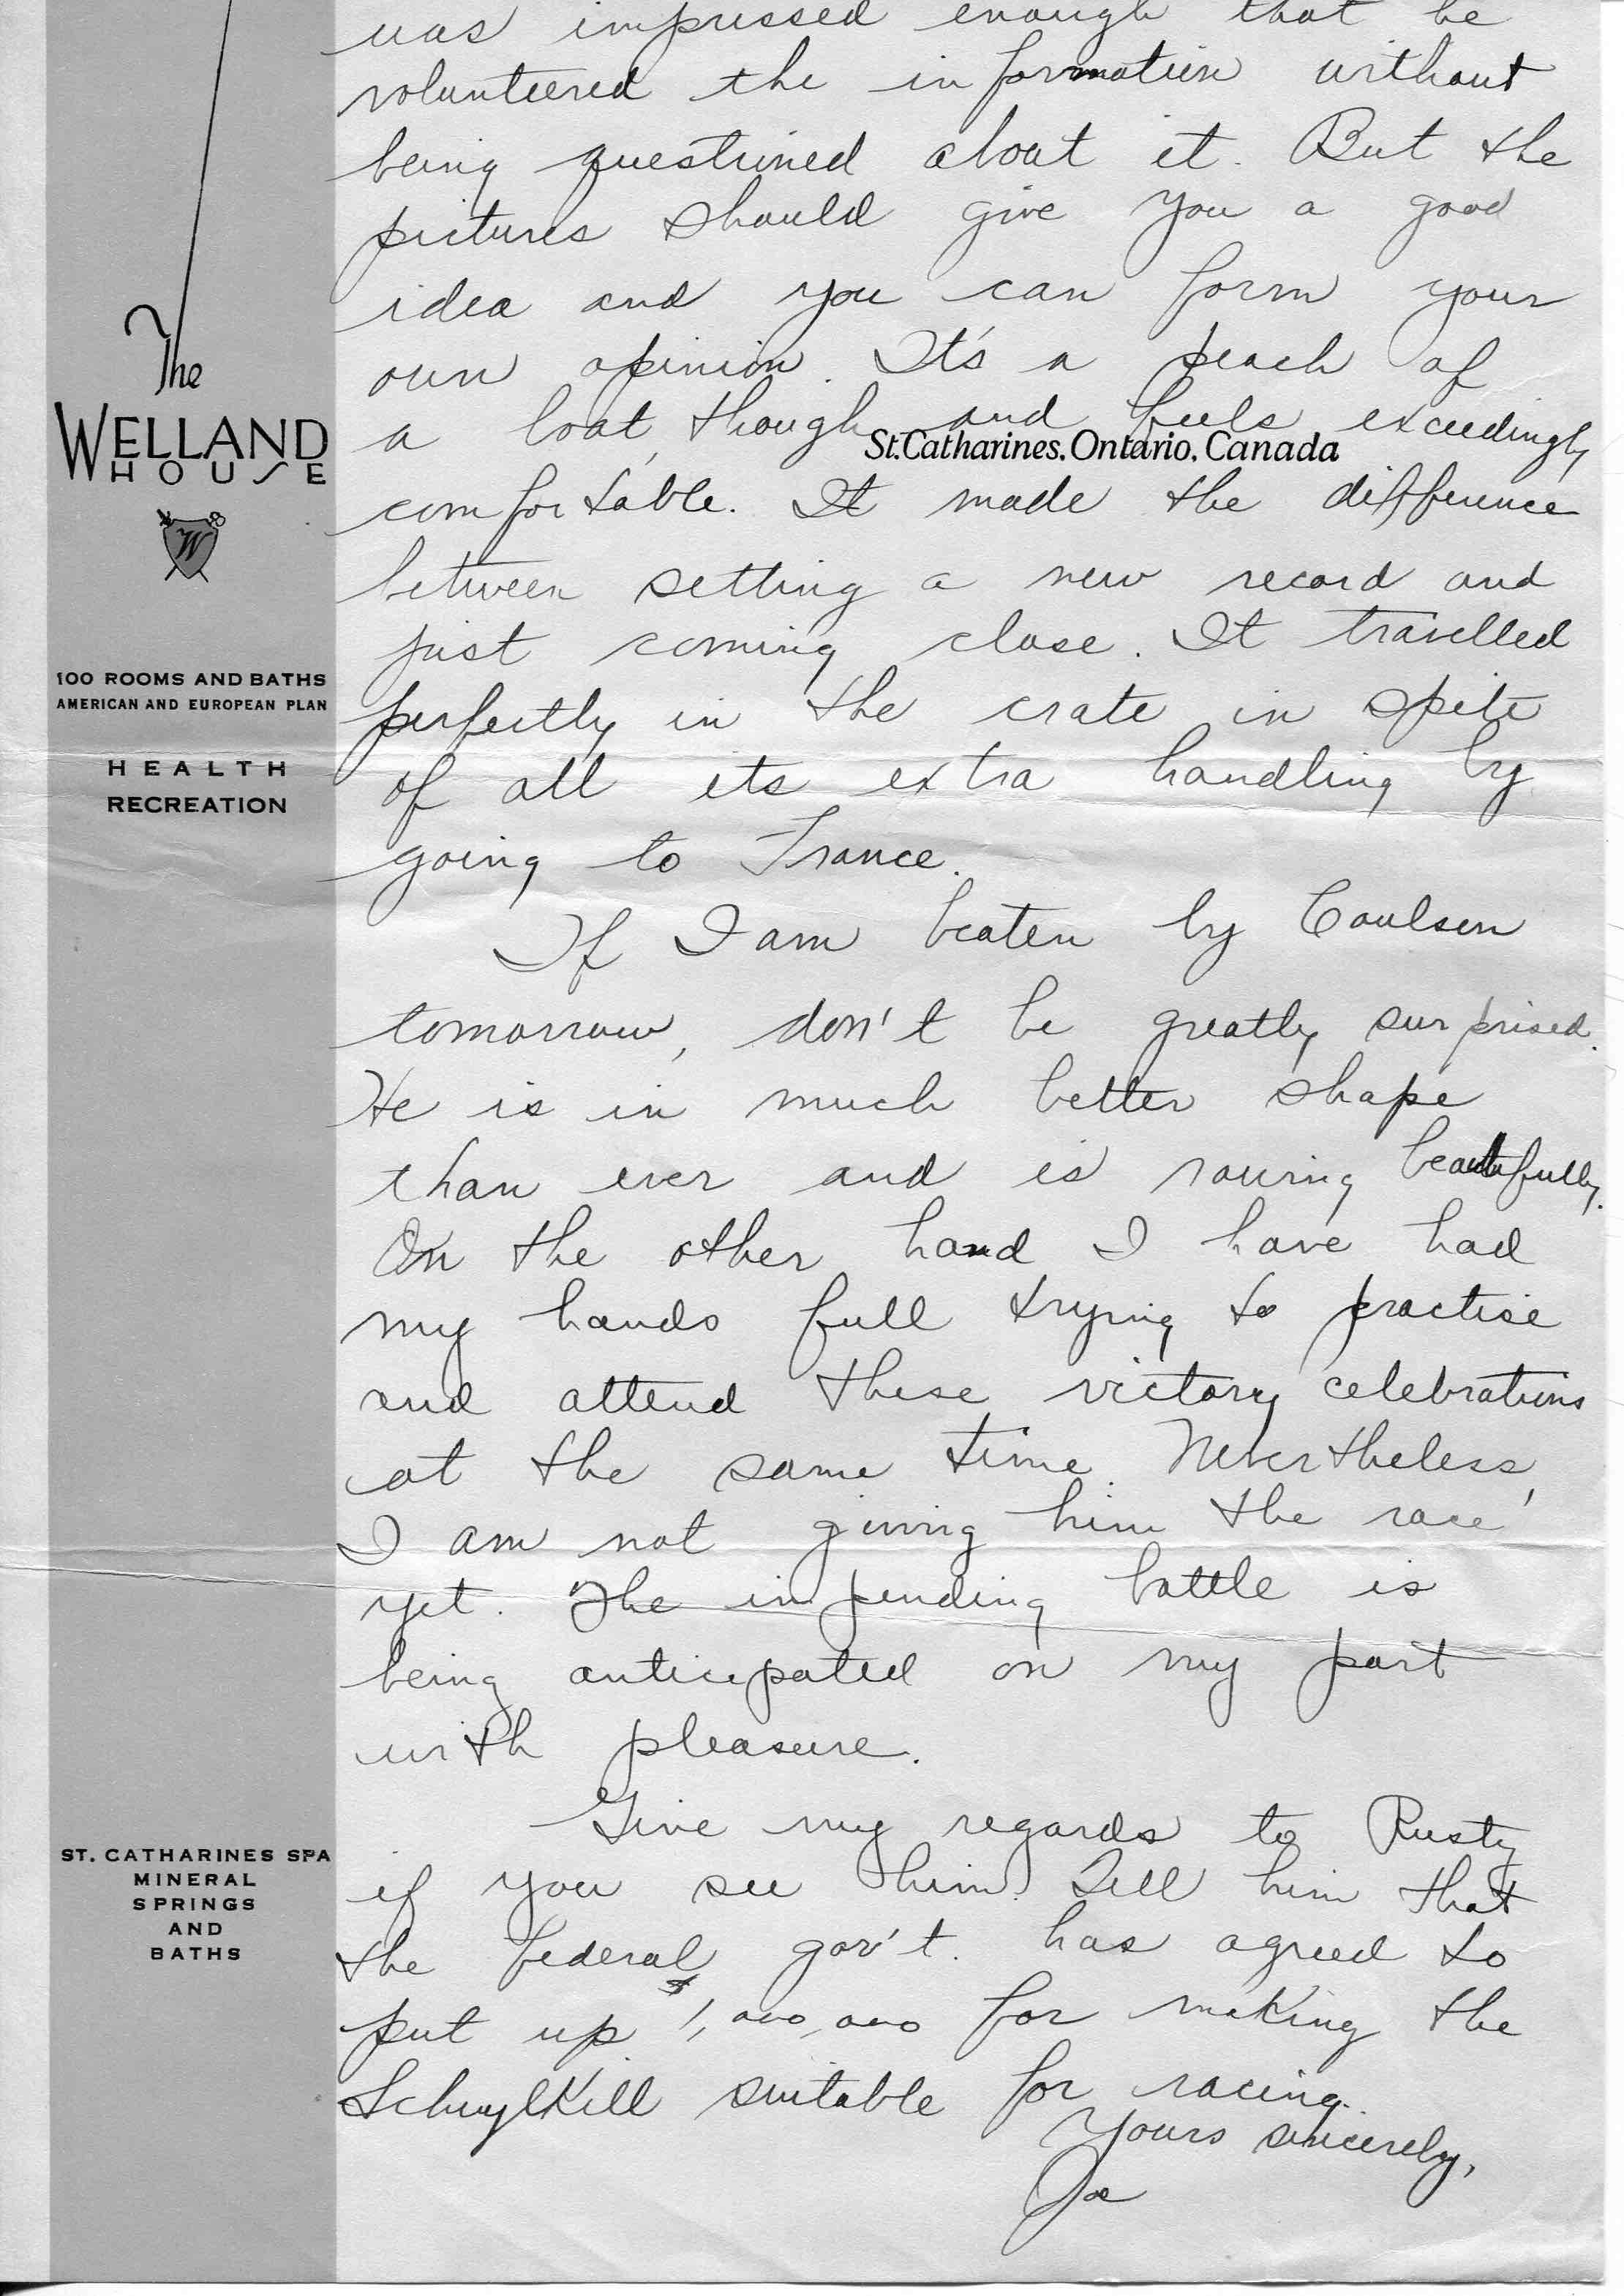 The
WELLAND
HOUSE
W
100 ROOMS AND BATHS
AMERICAN AND EUROPEAN PLAN
HEALTH
RECREATION
ST. CATHARINES SPA
MINERAL
SPRINGS
AND
BATHS
St. Catharines, Ontario, Canada
was impressed enough that he
volunteered the information without
being questioned about it. But the
pictures should give you a good
idea and you can form your
own opinion. It's a peach of
a boat, though and feels exceedingly
comfortable. It made the difference
between setting a new record and
just coming close. It travelled
perfectly in the crate in spite
of all its extra handling by
going to France.
If I am beaten by Coulson
tomorrow, don't be greatly surprised.
He is in much better shape
than ever and is rowing beautifully.
On the other hand I have had
my hands full trying to practise
and attend these victory celebrations
at the same time. Nevertheless,
I am not giving him the race
yet. The impending battle is
being anticipated on my part
with pleasure.
Give my regards to Rusty
if you see him. Tell him that
the federal gov't. has agreed to
put up $1,000,000 for making the
Schuylkill suitable for racing.
Yours sincerely,
Joe